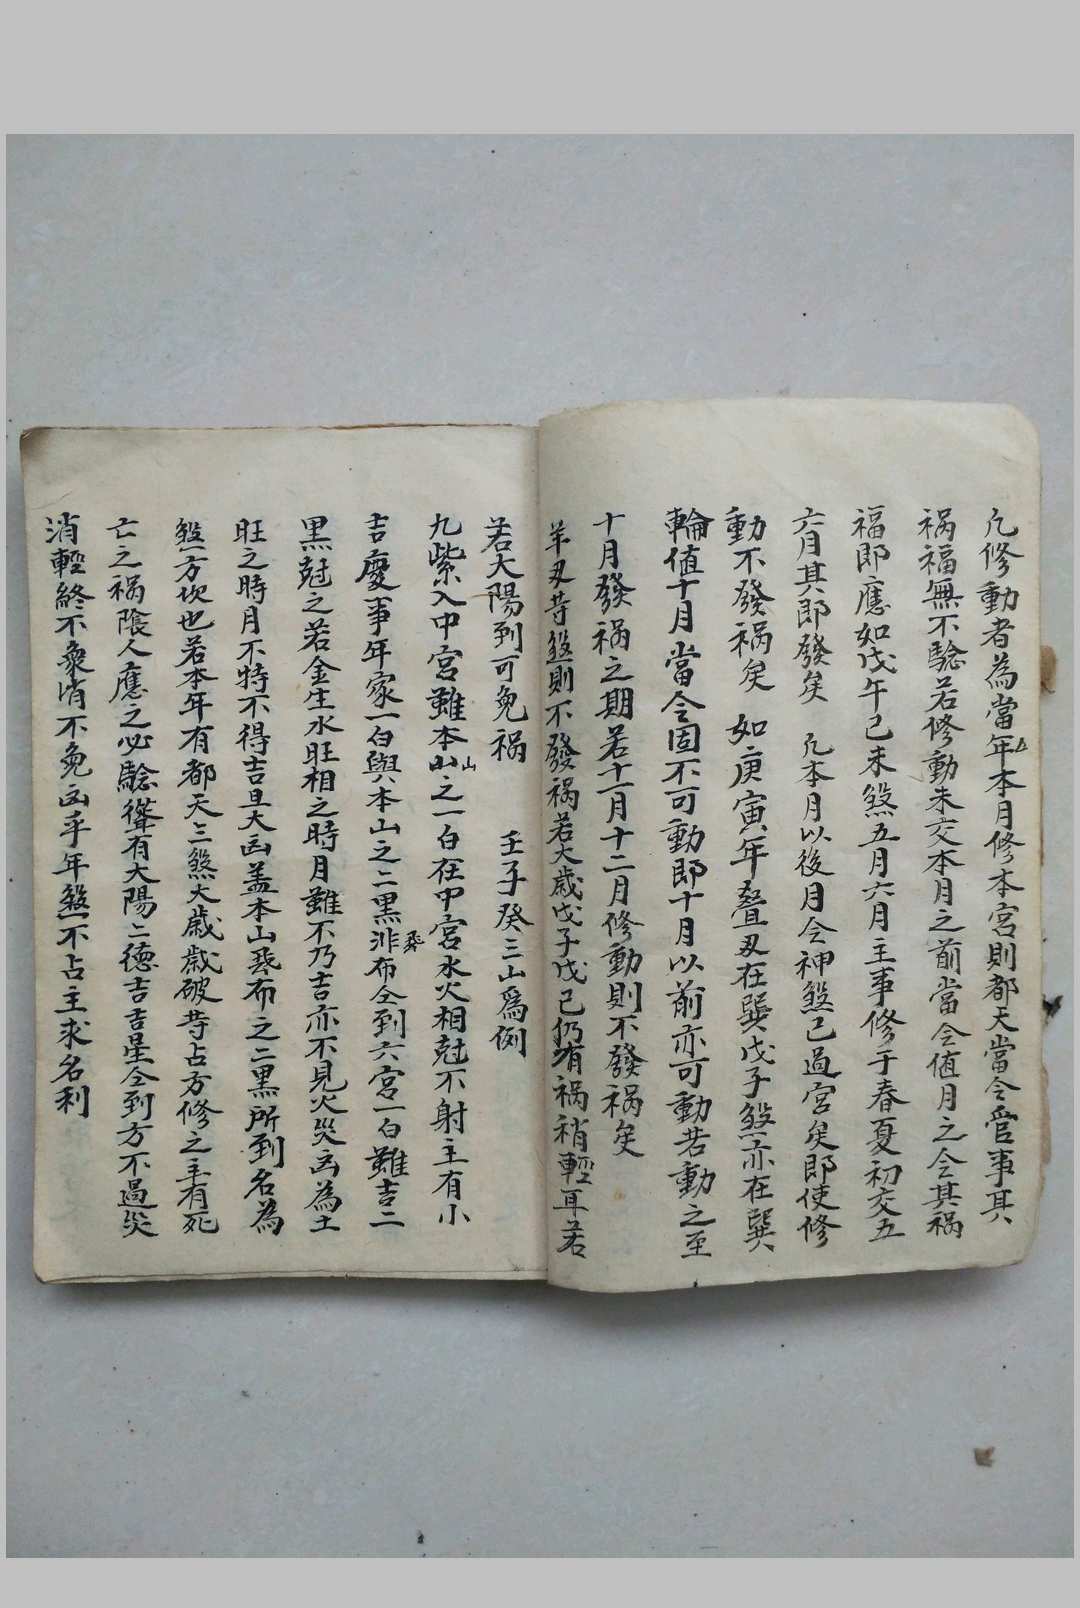 凡修動者為當年本月修本宮則都天當令官事其
祸福無不驗若修動未交本月之前當令值月之令其祸
福即應如戊午己未煞五月六月主事修于春夏初交五
六月其即發矣 凡本月以後月令神煞已過宮矣即使修
動不發祸矣 如庚寅年叠刃在巽戊子煞亦在巽
輪值十月當令固不可動即十月以前亦可動若動之至
十月發祸之期若十一月十二月修動則不發祸矣
羊刃苻煞則不發祸若大歲戊子戊己仍有祸稍輕耳若
若大陽到可免祸 壬子癸三山爲例
九紫入中宮雖本山之一白在中宮水火相尅不射主有小
吉慶事年家一白與本山之二黑飛布仝到六宮一白雖吉二
黑尅之若金生水旺相之時月雖不乃吉亦不見火災凶為土
旺之時月不特不得吉且大凶盖本山飛布之二黑所到名為
煞方坎也若本年有都天三煞大歲歲破苻占方修之主有死
亡之祸隂人應之必驗縱有大陽二德吉吉星仝到方不過災
消輕終不衆消不免凶乎年煞不占主求名利